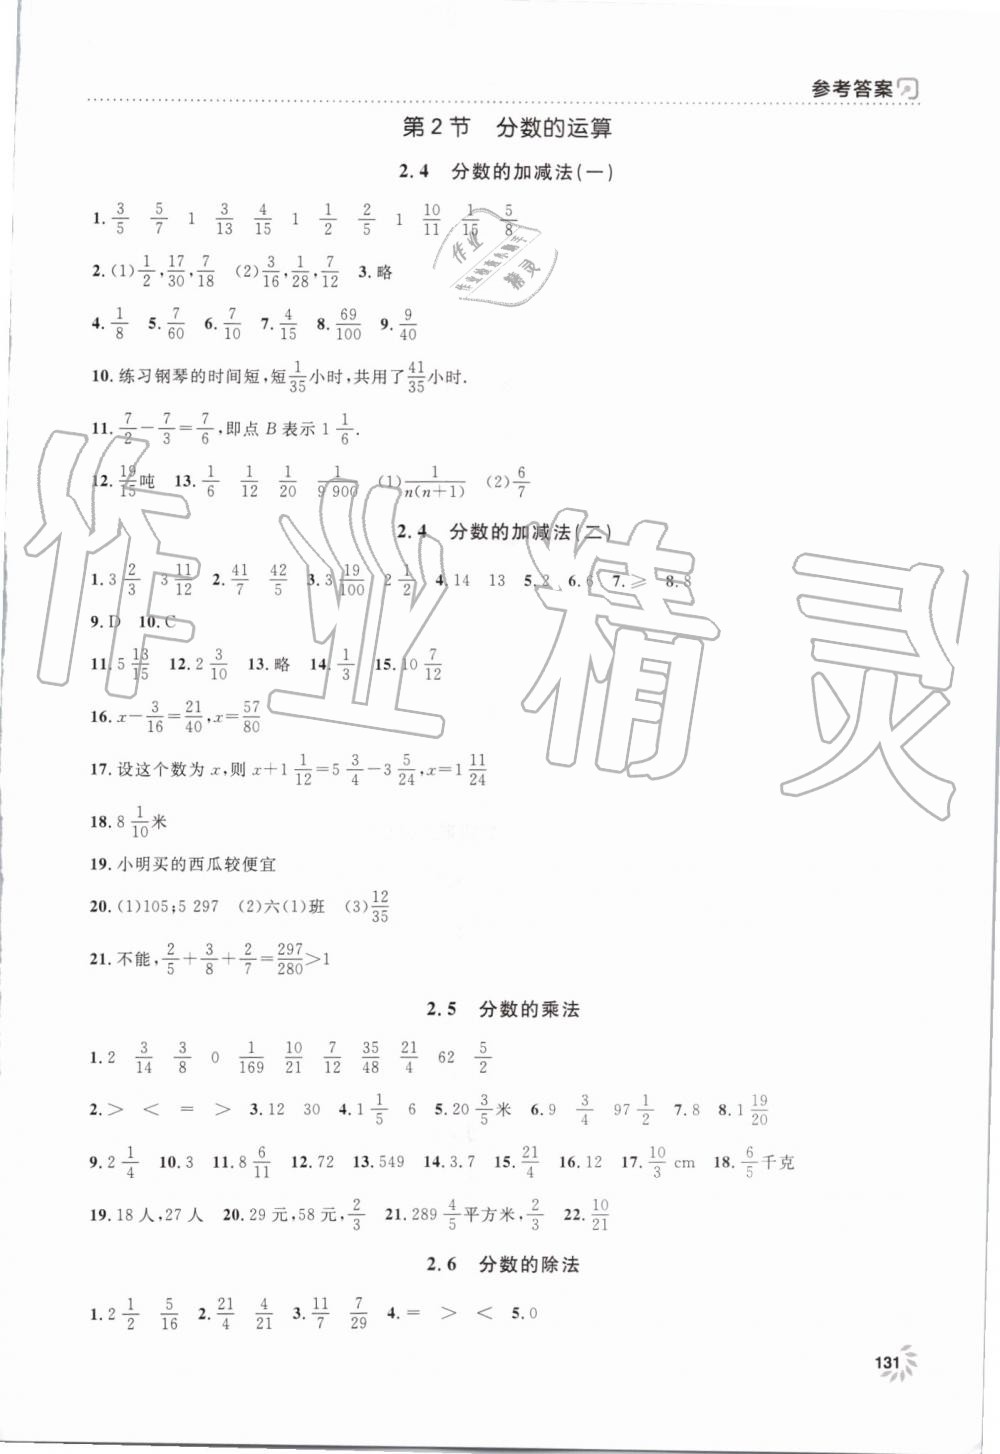 参考答案
第2节 分数的运算
2.4 分数的加减法(一)
1. 3/5 5/7 1 3/13 4/15 1 1/2 2/5 1 10/11 1/15 5/8
2.(1)1/2,17/30,7/18 (2)3/16,1/28,7/12 3.略
4. 1/8 5. 7/60 6. 7/10 7. 4/15 8. 69/100 9. 9/40
10.练习钢琴的时间短,短1/35小时,共用了41/35小时.
11. 7/2-7/3=7/6,即点B表示1 1/6.
12. 19/15吨 13. 1/6 1/12 1/20 1/9 900 (1)1/n(n+1) (2)6/7
2.4 分数的加减法(二)
1.3 2/3 3 11/12 2. 41/7 42/5 3.3 19/100 2 1/2 4.14 13 5.2 6.6 7.≥ 8.8
9.D 10.C
11.5 13/15 12.2 3/10 13.略 14. 1/3 15.10 7/12
16.x-3/16=21/40,x=57/80
17.设这个数为x,则x+1 1/12=5 3/4-3 5/24,x=1 11/24
18.8 1/10米
19.小明买的西瓜较便宜
20.(1)105;5 297 (2)六(1)班 (3)12/35
21.不能,2/5+3/8+2/7=297/280>1
2.5 分数的乘法
1.2 3/14 3/8 0 1/169 10/21 7/12 35/48 21/4 62 5/2
2.> < = > 3.12 30 4.1 1/5 6 5.20 3/5米 6.9 3/4 97 1/2 7.8 8.1 19/20
9.2 1/4 10.3 11.8 6/11 12.72 13.549 14.3.7 15. 21/4 16.12 17. 10/3 cm 18. 6/5千克
19.18人,27人 20.29元,58元,2/3 21.289 4/5平方米,2/3 22. 10/21
2.6 分数的除法
1.2 1/2 5/16 2. 21/4 4/21 3. 11/7 7/29 4.= > < 5.0
131
作业精灵
作业
作业检查小助手
精灵